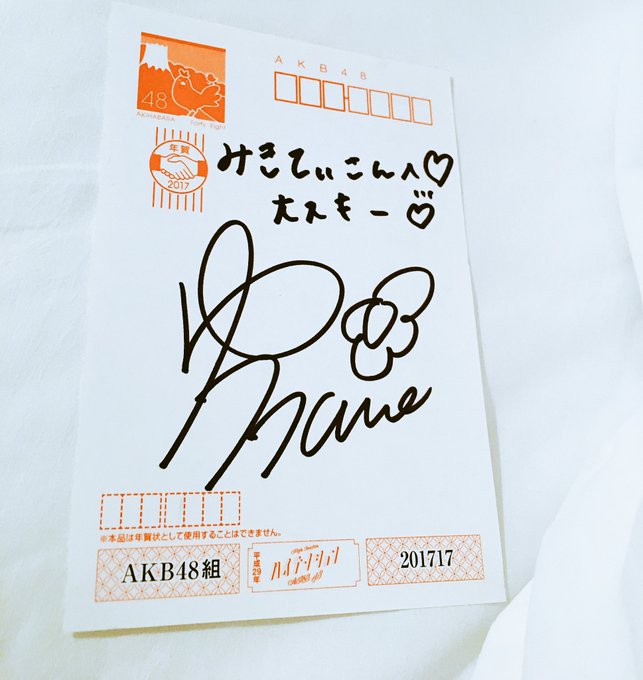 AKB48
48
AKIHABARA Forty Eight
年賀
2017
みきてぃこんへ♡
大スキー♡
※本品は年賀状として使用することはできません。
AKB48組
平成29年
High Tension
ハイテンション
AKB48
201717